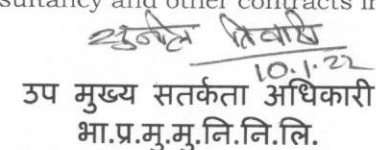 sultancy and other contracts in
सुनील तिवारी
10.1.22
उप मुख्य सतर्कता अधिकारी
भा.प्र.मु.मु.नि.नि.लि.